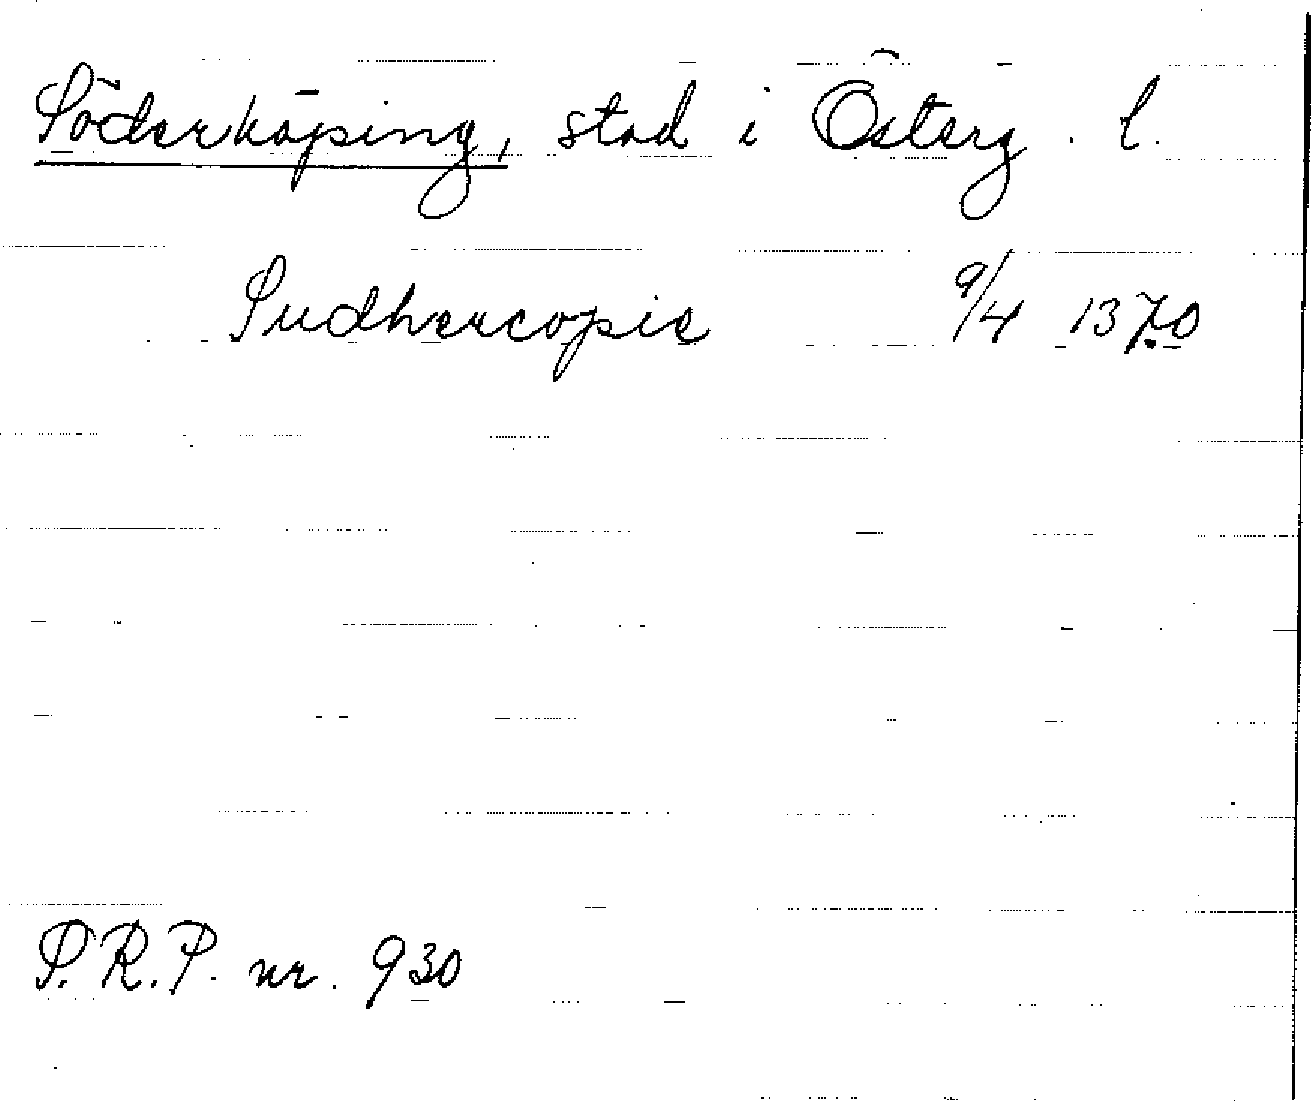 Söderköping, stad i Österg. l.
Sudhercopie 9/4 1370
S.R.P. nr. 930